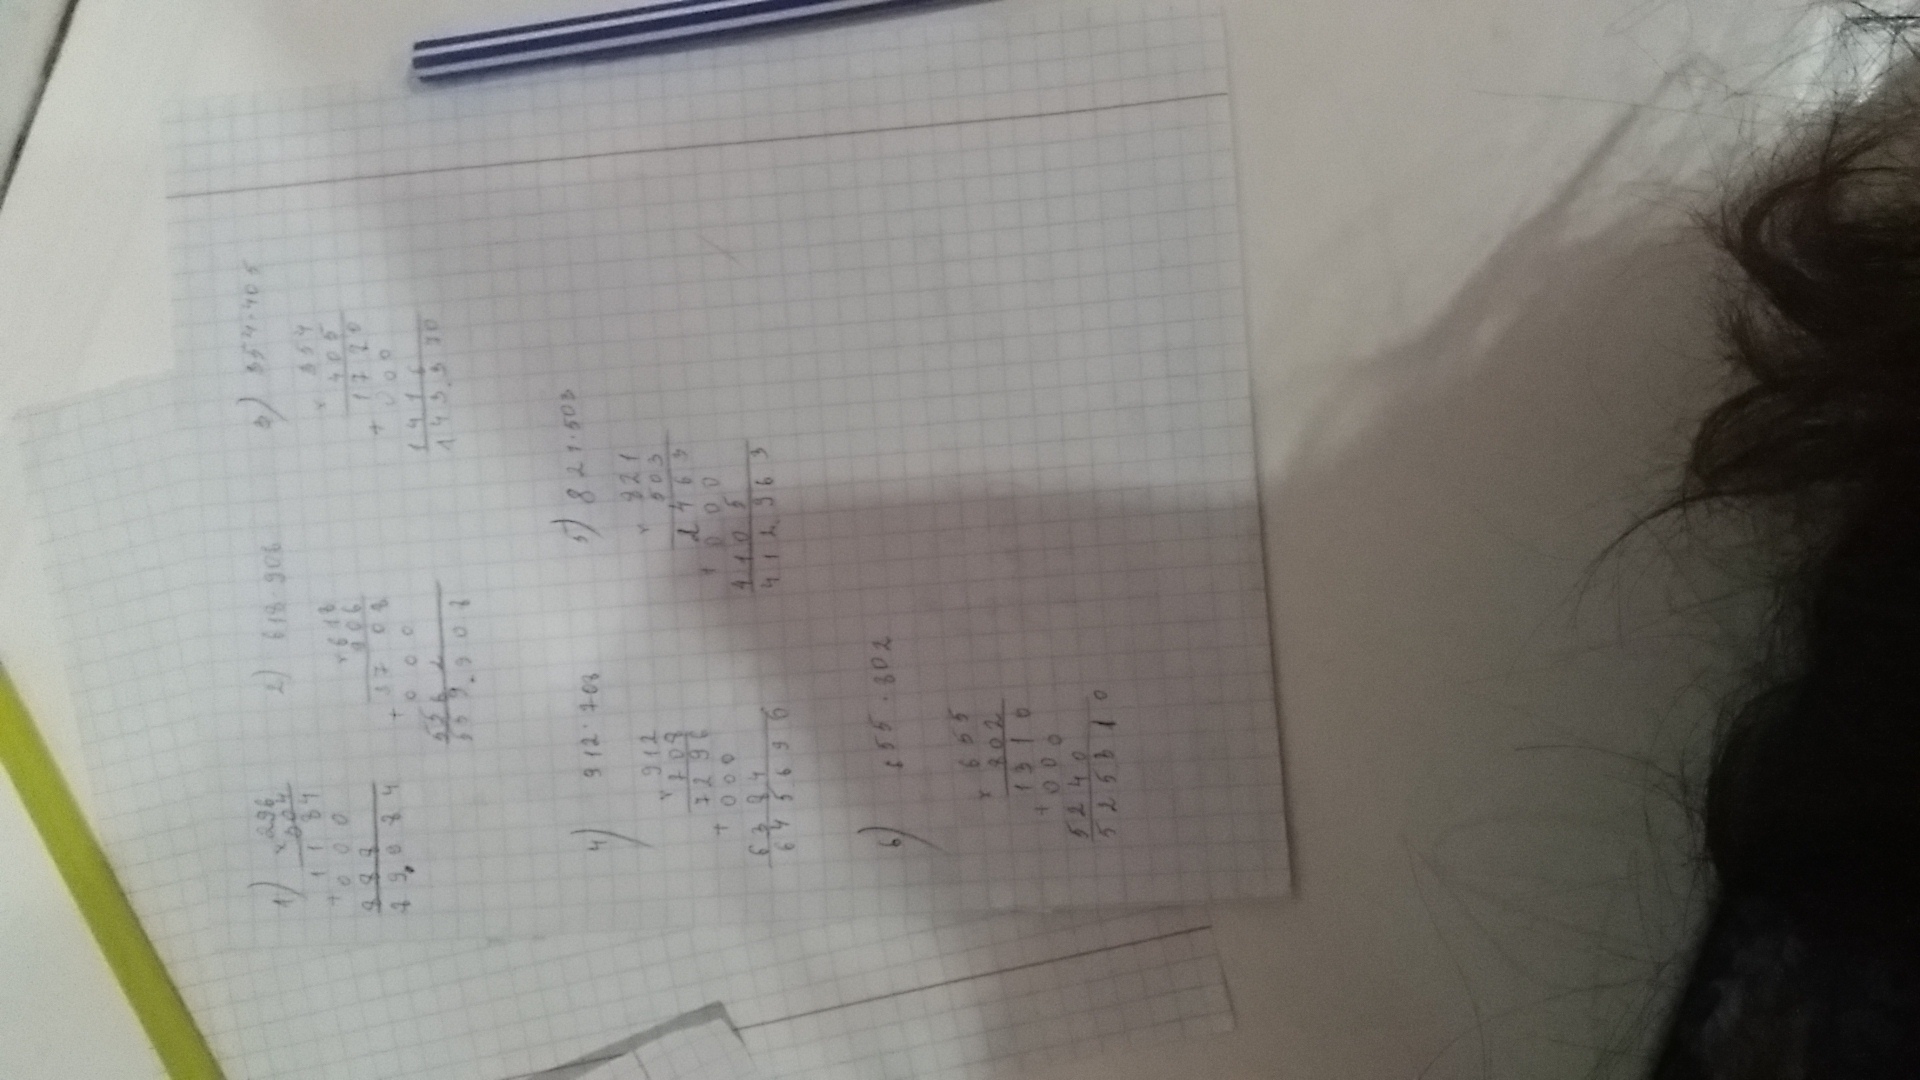 1) × 296
304
1 1 8 4
+ 0 0 0
8 8 8
8 9.9 8 4
2) 618 · 906
× 618
906
37 08
+ 0 0 0
556 2
5 5 9.9 0 8
3) 354 · 405
× 354
405
17 70
+ 0 0 0
1 4 1 6
1 4 3.3 70
4) 912 · 708
× 912
708
72 96
+ 000
63 84
6 4 5.6 9 6
5) 821 · 503
× 821
503
2 4 6 3
+ 0 0 0
4 1 0 5
4 1 2.9 6 3
6) 655 · 802
× 6 55
802
1 3 1 0
+ 0 0 0
52 4 0
5 2 5 3 1 0